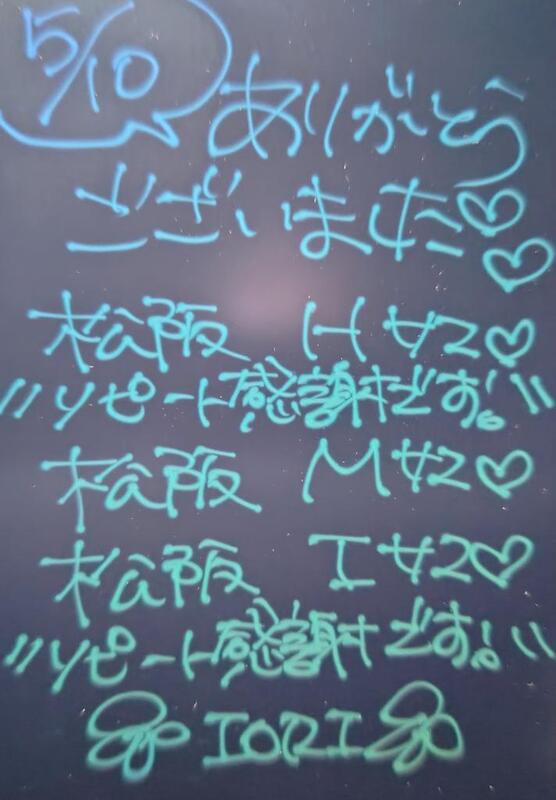 5/10
ありがとう
ございました♡♡
松阪 Hサマ♡
"リピート感謝です!"
松阪 Mサマ♡
松阪 Iサマ♡
"リピート感謝です!"
IORI